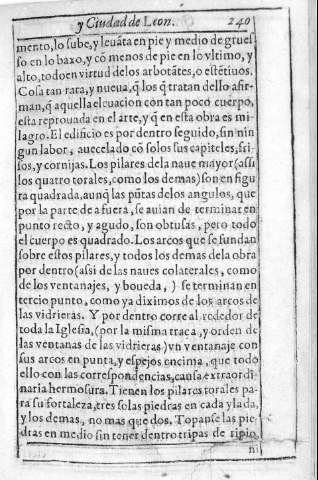 y Ciudad de Leon. 240
mento, lo sube, y leuãta en pie y medio de grues
so en lo baxo, y cõ menos de pie en lo vltimo, y
alto, todo en virtud delos arbotãtes, o estẽtiuos.
Cosa tan rara, y nueua, q̃ los q̃ tratan dello afir-
man, q̃ aquella eleuacion con tan poco cuerpo,
esta reprouada en el arte, y q̃ en esta obra es mi-
lagro. El edificio es por dentro seguido, sin nin
gun labor, auecelado cõ solos sus capiteles, fri-
sos, y cornijas. Los pilares dela naue mayor (assi
los quatro torales, como los demas) son en figu
ra quadrada, aunq̃ las pũtas delos angulos, que
por la parte de a fuera, se auian de terminar en
punto recto, y agudo, son obtusas, pero todo
el cuerpo es quadrado. Los arcos que se fundan
sobre estos pilares, y todos los demas dela obra
por dentro (assi de las naues colaterales, como
de los ventanajes, y boueda, ) se terminan en
tercio punto, como ya diximos de los arcos de
las vidrieras. Y por dentro corre al rededor de
toda la Iglesia, (por la misma traça, y orden de
las ventanas de las vidrieras) vn ventanaje con
sus arcos en punta, y espejos encima, que todo
ello con las correspondencias, causa extraordi
naria hermosura. Tienen los pilares torales pa-
ra su fortaleza, tres solas piedras en cada ylada,
y los demas, no mas que dos. Topanse las pie-
dras en medio sin tener dentro tripas de ripio,
ni